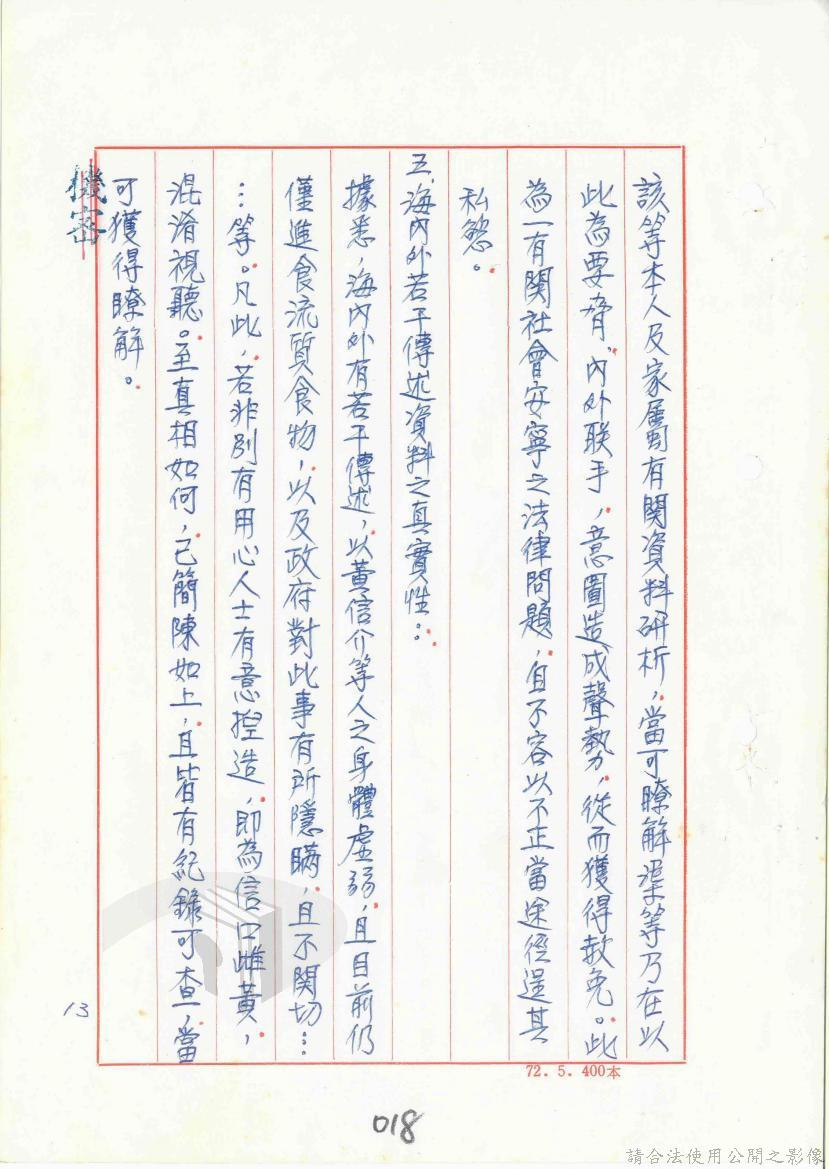 該等本人及家屬有関資料研析，當可瞭解渠等乃在以
此為要脅，內外联手，意圖造成聲勢，從而獲得赦免。此
為一有関社會安寧之法律問題，且不容以不正當途徑逞其
私慾。
五、海內外若干傳述資料之真實性：
據悉，海內外有若干傳述，以黃信介等人之身體虛弱，且目前仍
僅進食流質食物，以及政府對此事有所隱瞞，且不関切…
…等。凡此，若非別有用心人士有意揑造，即為信口雌黃，
混淆視聽。至真相如何，已簡陳如上，且皆有紀錄可查，當
可獲得瞭解。
機密
13
72. 5. 400本
018
請合法使用公開之影像